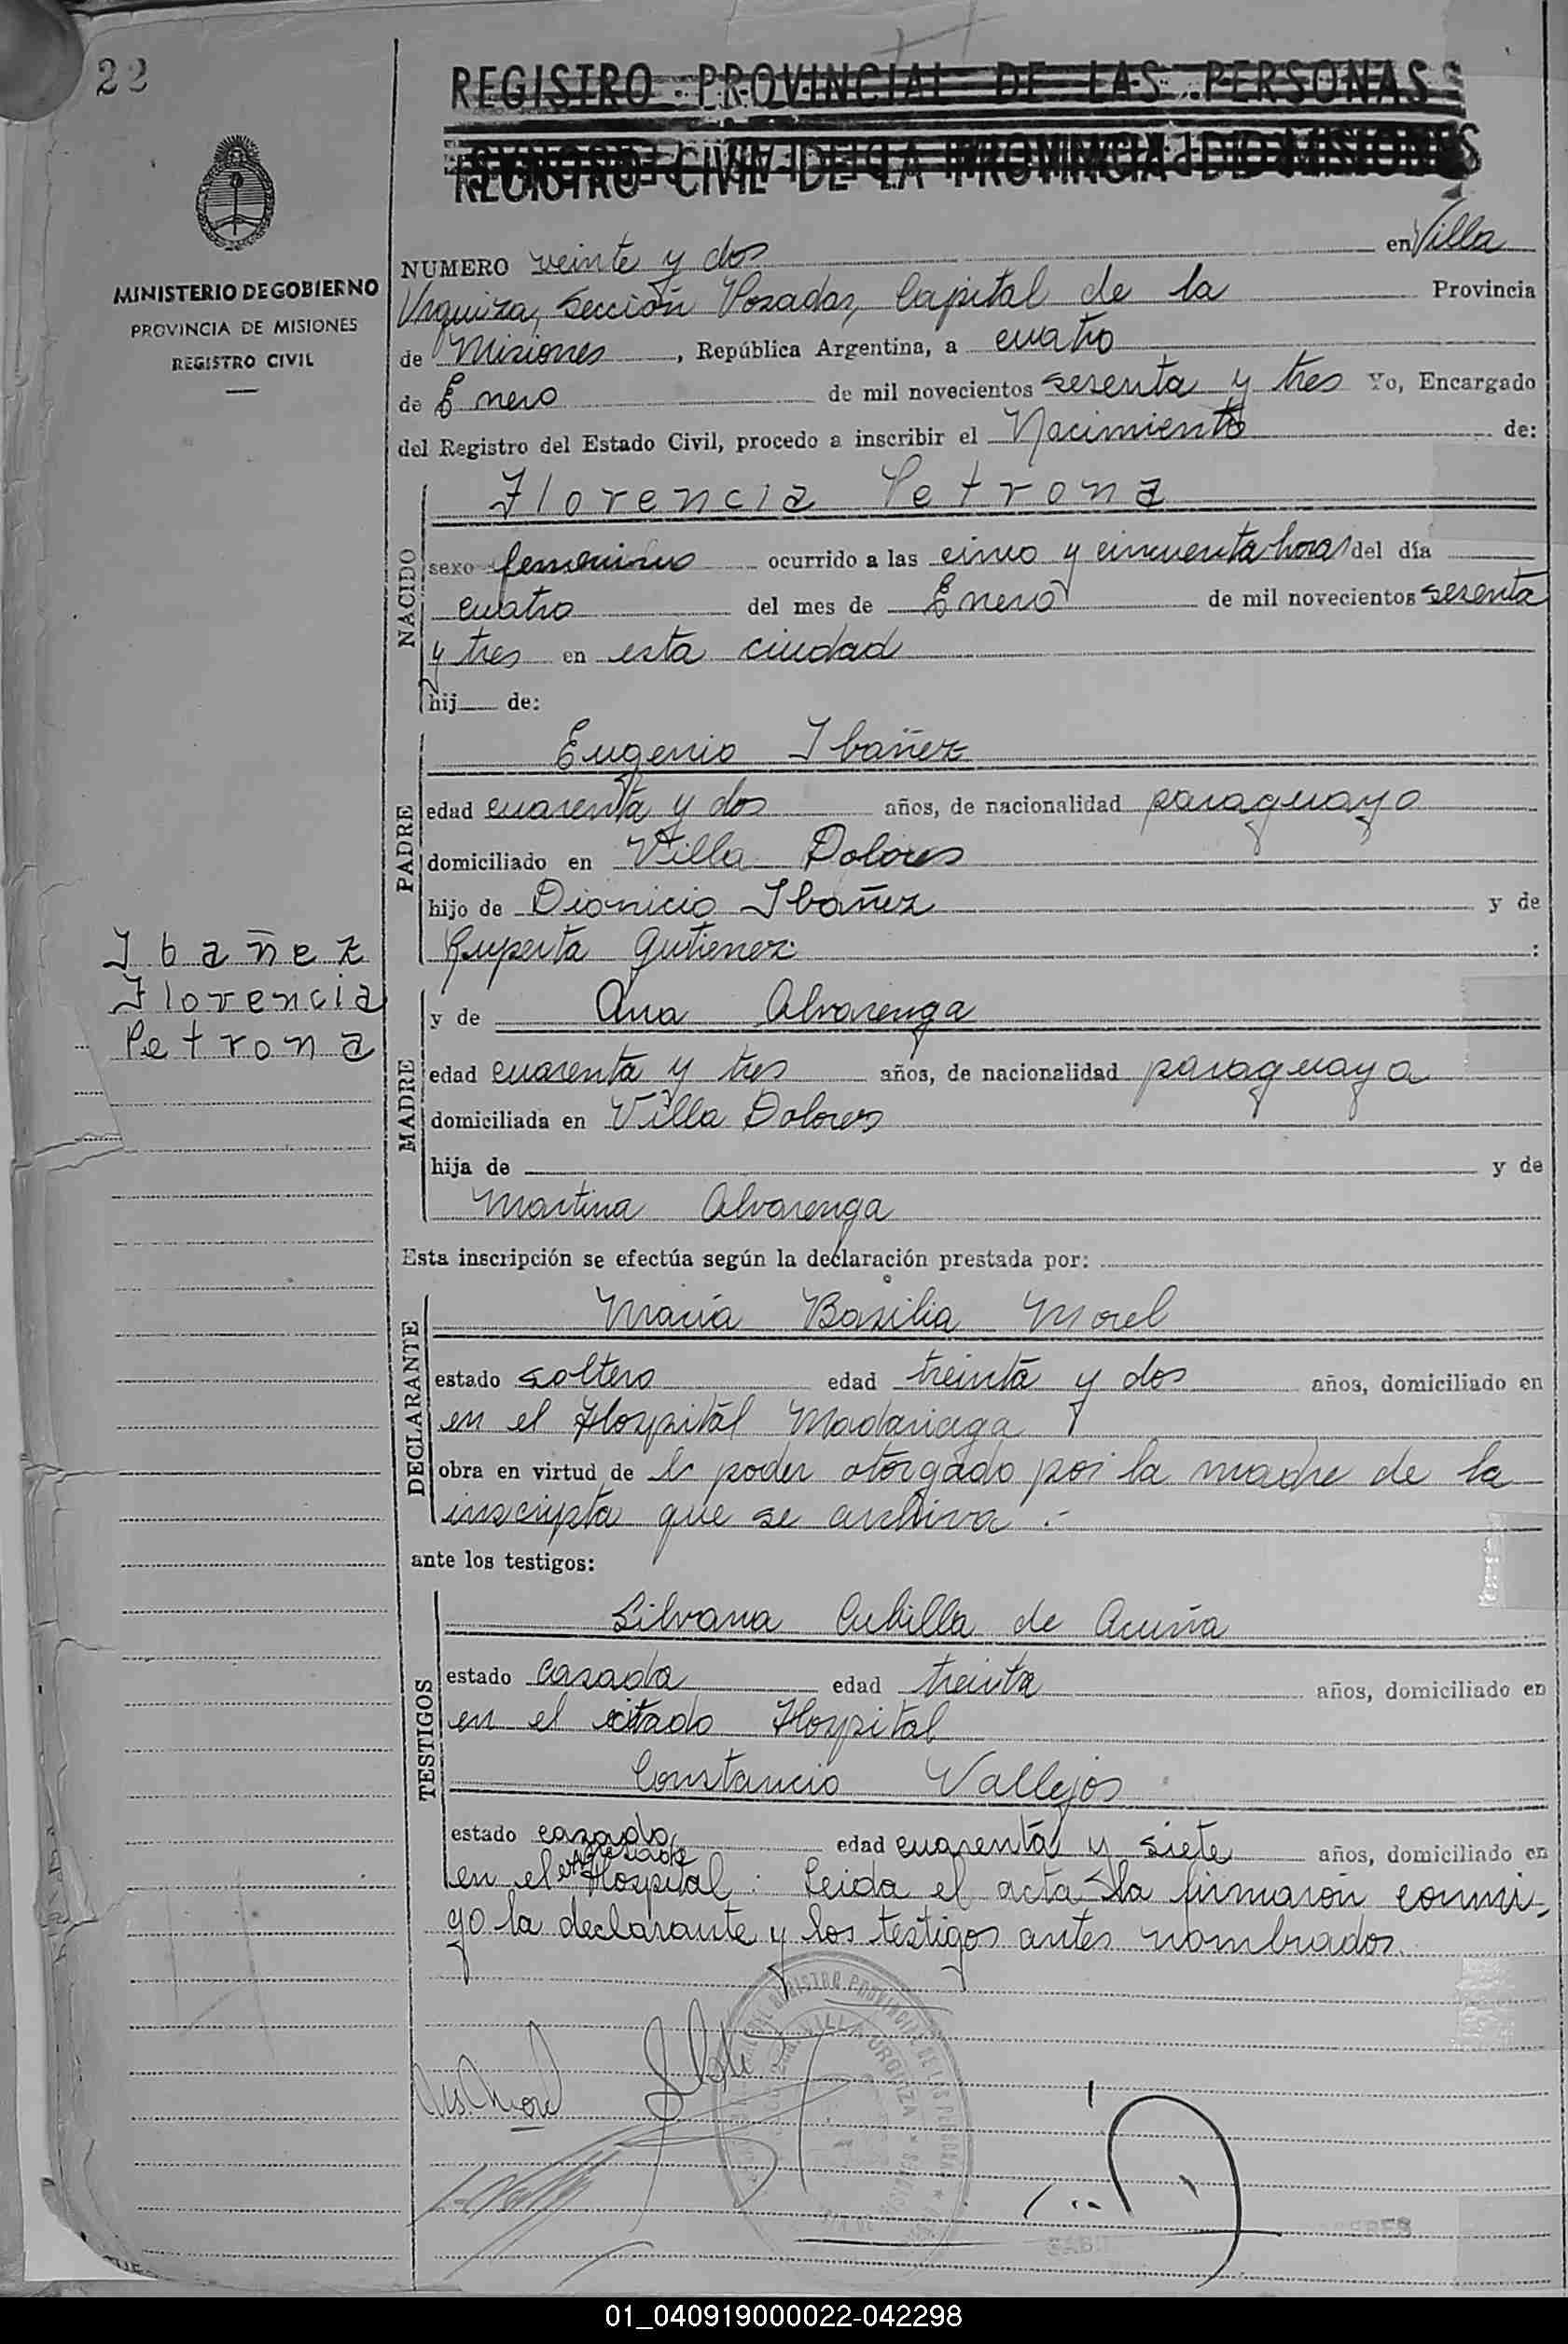 22
REGISTRO PROVINCIAL DE LAS PERSONAS
REGISTRO CIVIL DE LA PROVINCIA DE MISIONES
MINISTERIO DE GOBIERNO
PROVINCIA DE MISIONES
REGISTRO CIVIL
NUMERO veinte y dos en Villa
Urquiza, Sección Posadas, Capital de la Provincia
de Misiones, República Argentina, a cuatro
de Enero de mil novecientos sesenta y tres Yo, Encargado
del Registro del Estado Civil, procedo a inscribir el Nacimiento de:
NACIDO
Florencia Petrona
sexo femenino ocurrido a las cinco y cincuenta horas del día
cuatro del mes de Enero de mil novecientos sesenta
y tres en esta ciudad
hij de:
PADRE
Eugenio Ibañez
edad cuarenta y dos años, de nacionalidad paraguayo
domiciliado en Villa Dolores
hijo de Dionicio Ibañez y de
Ruperta Gutierrez:
Ibañez
Florencia
Petrona
MADRE
y de Ana Alvarenga
edad cuarenta y tres años, de nacionalidad paraguaya
domiciliada en Villa Dolores
hija de y de
Martina Alvarenga
Esta inscripción se efectúa según la declaración prestada por:
DECLARANTE
María Basilia Morel
estado soltera edad treinta y dos años, domiciliado en
en el Hospital Madariaga
obra en virtud de poder otorgado por la madre de la
inscripta que se archiva.-
ante los testigos:
TESTIGOS
Silvana Cubilla de Acuña
estado casada edad treinta años, domiciliado en
en el citado Hospital
Constancio Vallejos
estado casado edad cuarenta y siete años, domiciliado en
en el expresado Hospital: Leida el acta la firmaron conmi-
go la declarante y los testigos antes nombrados.
REGISTRO PROVINCIAL DE LAS PERSONAS
VILLA URQUIZA
01_040919000022-042298